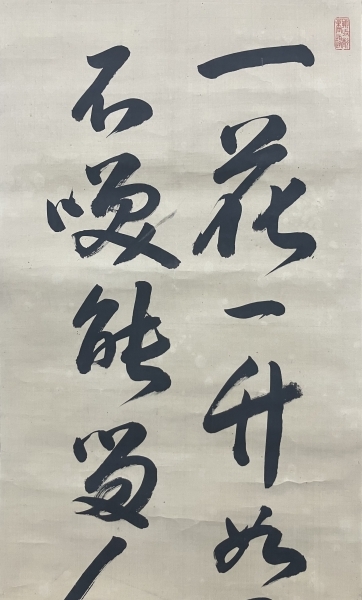 一花一竹如
不咲能留